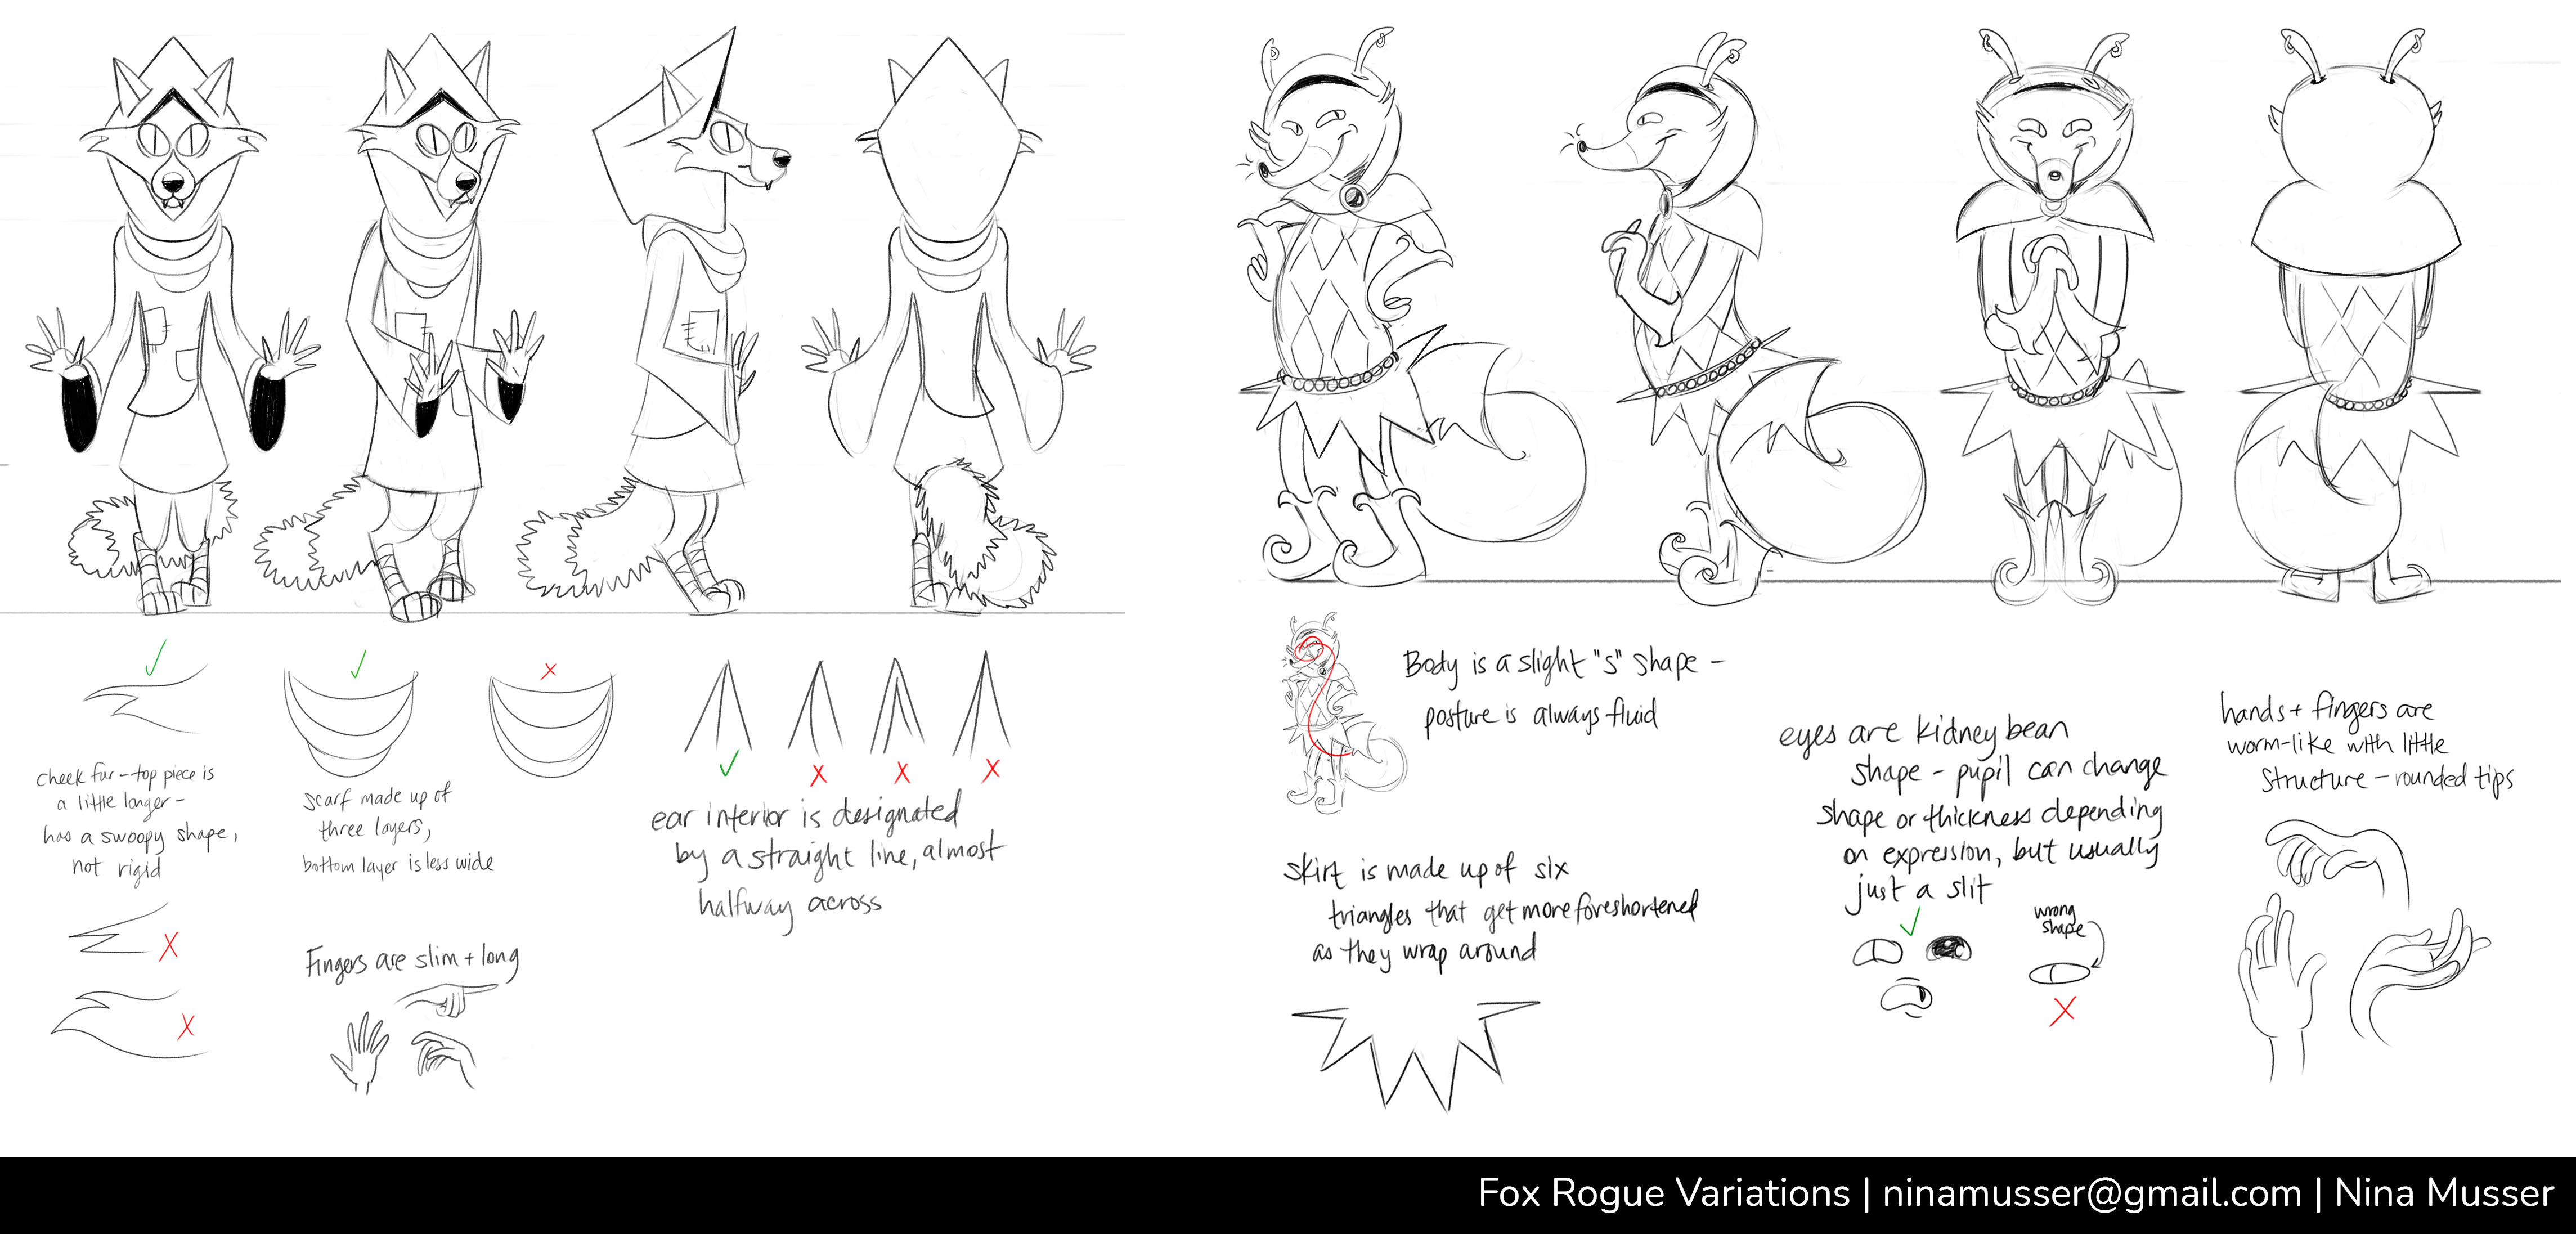 cheek fur - top piece is
a little longer -
has a swoopy shape,
not rigid
scarf made up of
three layers,
bottom layer is less wide
Fingers are slim + long
ear interior is designated
by a straight line, almost
halfway across
Body is a slight "S" shape -
posture is always fluid
skirt is made up of six
triangles that get more foreshortened
as they wrap around
eyes are kidney bean
shape - pupil can change
shape or thickness depending
on expression, but usually
just a slit
wrong
shape
hands + fingers are
worm-like with little
structure - rounded tips
Fox Rogue Variations | ninamusser@gmail.com | Nina Musser